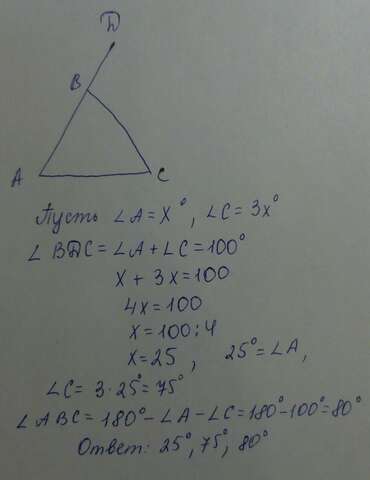 D
B
A
C
Пусть ∠A = x°, ∠C = 3x°
∠BDC = ∠A + ∠C = 100°
x + 3x = 100
4x = 100
x = 100 : 4
x = 25, 25° = ∠A,
∠C = 3 · 25° = 75°
∠ABC = 180° - ∠A - ∠C = 180° - 100° = 80°
Ответ: 25°, 75°, 80°